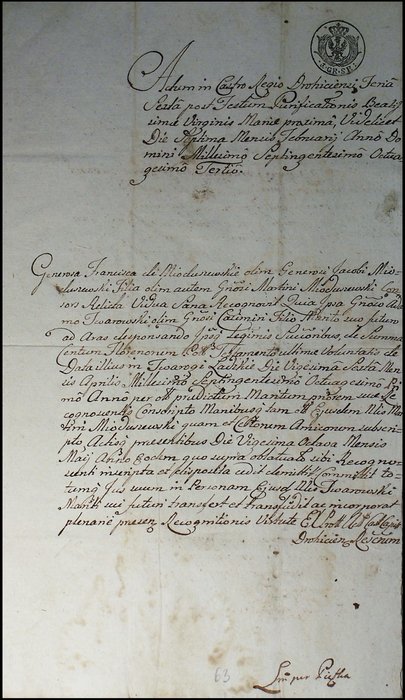 4 GR. SR.
Actum in Castro Regio Drohiciensi Feria
Sexta post Festum Purificationis Beatiss
imæ Virginis Mariæ proxima, Videlicet
Die Septima Mensis Februarij Anno Do
mini Millesimo Septingentesimo Octua
gesimo Tertio.
Generosa Francisca de Mioduszewskie olim Generosi Jacobi Mio
duszewski Filia olim autem Gnosi Martini Mioduszewski Con
sors Relicta Vidua Sana Recognovit Quia Ipsa Gnoso Ada
mo Twarowski olim Gnosi Casimiri Filio Marito suo futuro
ad Aras desponsando Ipsq Legitimis Successoribus de Summa
Centum Florenorum Testamento ultimæ Voluntatis de
Data illius in Twarogi Lackie Die Vigesima Sexta Men
sis Aprilis Millesimo Septingentesimo Octuagesimo Pri
mo Anno per prædictum Maritum priorem suæ Re
cognoscentis Conscripto Manibusq tam Ejusdem Mar
tini Mioduszewski quam et Amicorum subscri
pto Actisq præsentibus Die Vigesima Octava Mensis
Maij Anno Eodem quo supra oblato sibi Recogno
scenti inscripta et disposita cedit Committit to
tumq Jus suum in Personam Ejusd Twarowski
Mariti sui futuri transfert et transfundit ac incorporat
plenarie præsen Recognitionis Virtute
Drohicien Rescrum
63
per